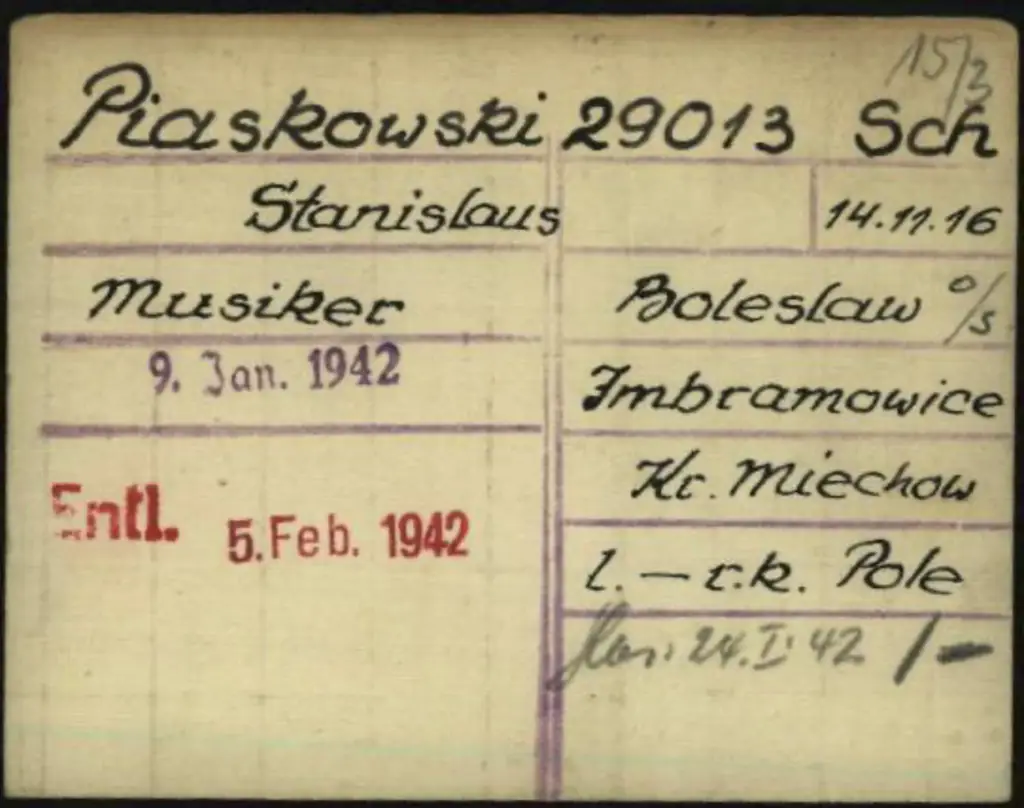 15/3
Piaskowski 29013 Sch
Stanislaus 14.11.16
Musiker
Boleslaw O/S
9. Jan. 1942
Imbramowice
Kr. Miechow
Entl. 5. Feb. 1942
l. — r.k. Pole
24.I.42 / —